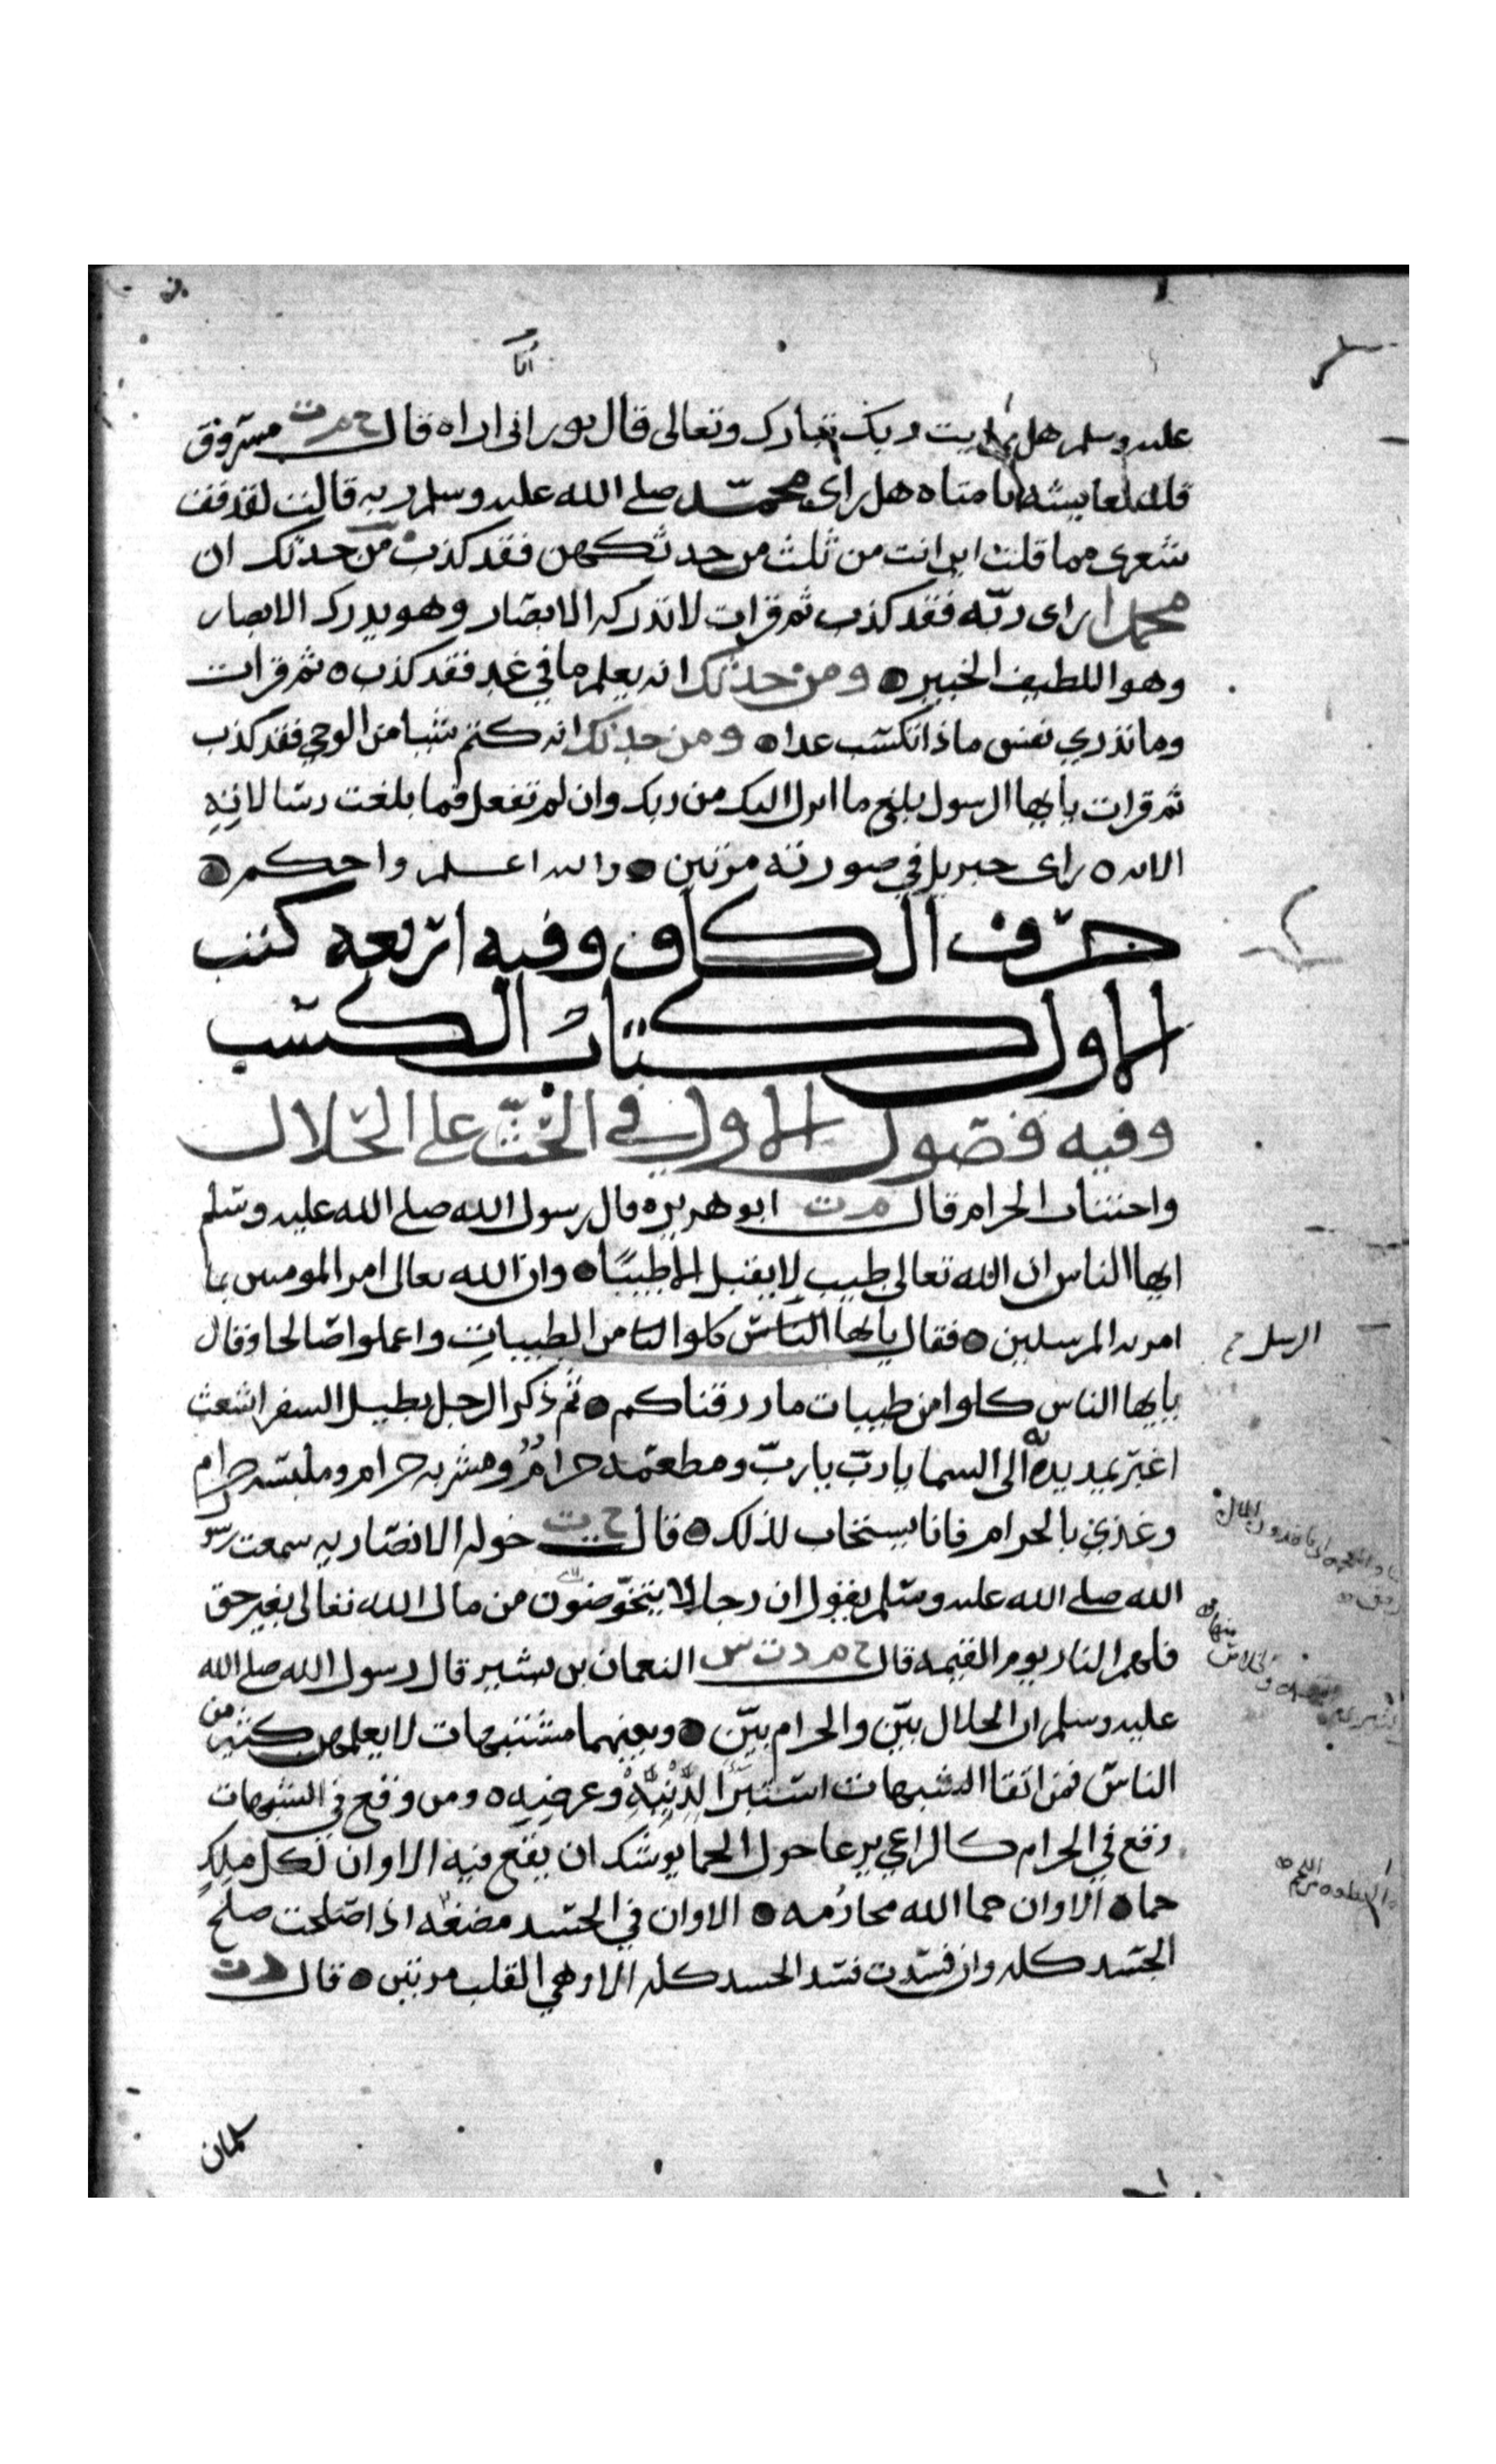 أنّا
عليه وسلم هل رايت ربك تبارك وتعالى قال نور انى اراه قال خ م ت مسروق
قلت لعايشة يا امتاه هل راى محمد صلى الله عليه وسلم ربه قالت لقد قف
شعرى مما قلت اين انت من ثلث من حدثكهن فقد كذب من حدثك ان
محمدا راى ربه فقد كذب ثم قرات لا تدركه الابصار وهو يدرك الابصار
وهو اللطيف الخبير ومن حدثك انه يعلم ما في غد فقد كذب ثم قرات
وما تدري نفس ماذا تكسب غدا ومن حدثك انه كتم شيا من الوحي فقد كذب
ثم قرات يايها الرسول بلغ ما انزل اليك من ربك وان لم تفعل فما بلغت رسالاته
الايه راى جبريل في صورته مرتين والله اعلم واحكم
حرف الكاف وفيه اربعة كتب
الاول كتاب الكسب
وفيه فصول الاول في الحث على الحلال
واجتناب الحرام قال م ت ابو هريره قال رسول الله صلى الله عليه وسلم
ايها الناس ان الله تعالى طيب لا يقبل الا طيبا وان الله تعالى امر المومنين بما
امر به المرسلين فقال يايها الناس كلوا من الطيبات واعملوا صالحا وقال
الرسل
يايها الناس كلوا من طيبات ما رزقناكم ثم ذكر الرجل يطيل السفر اشعث
اغبر يمد يديه الى السما يا رب يا رب ومطعمه حرام ومشربه حرام وملبسه حرام
وغذي بالحرام فانا يستجاب لذلك قال خ ت خوله الانصاريه سمعت رسول
الله صلى الله عليه وسلم يقول ان رجالا يتخوضون من مال الله تعالى بغير حق
فلهم النار يوم القيمه قال خ م د ت س النعمان بن بشير قال رسول الله صلى الله
عليه وسلم ان الحلال بيّن والحرام بيّن وبينهما مشتبهات لا يعلمهن كثير من
الناس فمن اتقا الشبهات استبرا لدينه وعرضه ومن وقع في الشبهات
وقع في الحرام كالراعي يرعا حول الحما يوشك ان يقع فيه الا وان لكل ملك
حما الا وان حما الله محارمه الا وان في الجسد مضغه اذا صلحت صلح
الجسد كله وان فسدت فسد الجسد كله الا وهي القلب مرتين قال د ت
سلمان